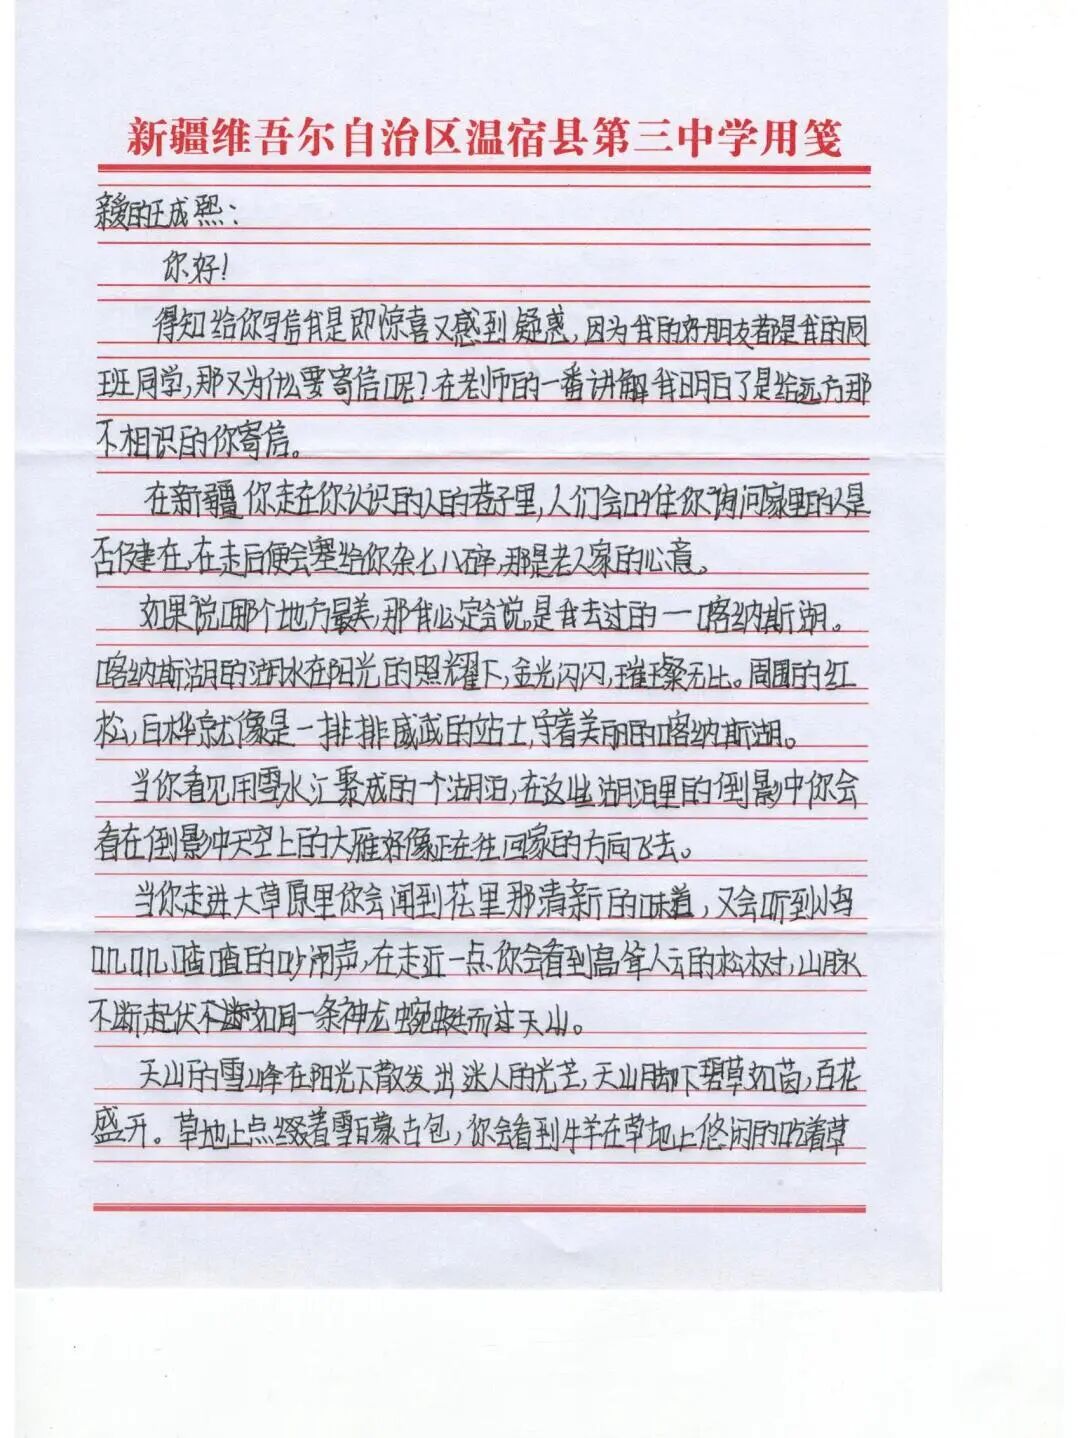 新疆维吾尔自治区温宿县第三中学用笺
亲爱的王成熙：
你好！
得知给你写信我是即惊喜又感到疑惑，因为我的好朋友都是我的同
班同学，那又为什么要寄信呢？在老师的一番讲解我明白了是给远方那
不相识的你寄信。
在新疆你走在你认识的人的巷子里，人们会叫住你询问家里的人是
否健在，在走后便会塞给你杂七八碎，那是老人家的心意。
如果说哪个地方最美，那我必定会说是我去过的一喀纳斯湖。
喀纳斯湖的湖水在阳光的照耀下，金光闪闪，璀璨无比。周围的红
松，白桦就像是一排排威武的站士，守着美丽的喀纳斯湖。
当你看见用雪水汇聚成的一个湖泊，在这些湖泊里的倒影中你会
看在倒影中天空上的大雁好像正在往回家的方向飞去。
当你走进大草原里你会闻到花里那清新的味道，又会听到小鸟
叽叽喳喳的吵闹声，在走近一点你会看到高耸人云的松树，山脉
不断起伏不断如同一条神龙蜿蜒而过天山。
天山的雪峰在阳光下散发出迷人的光芒，天山脚下碧草如茵，百花
盛开。草地上点缀着雪白蒙古包，你会看到牛羊在草地上悠闲的吃着草